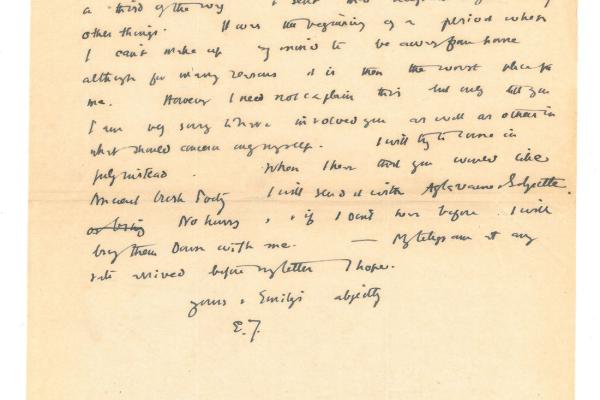 a third of the way I sent
other things. It was the beginning of a period when
I can't make up my mind to be away from home
although for many reasons it is then the worst place for
me. However I need not explain this but only tell you
I am very sorry to have involved you as well as others in
what should concern only myself. I will try to come in
July instead. When I hear that you would like
Ancient Irish Poetry I will send it with Aglavaine & Selysette.
No hurry, & if I don't hear before I will
bring them down with me. — My telegram at any
rate arrived before my letter I hope.
yours & Emily's abjectly
E.T.